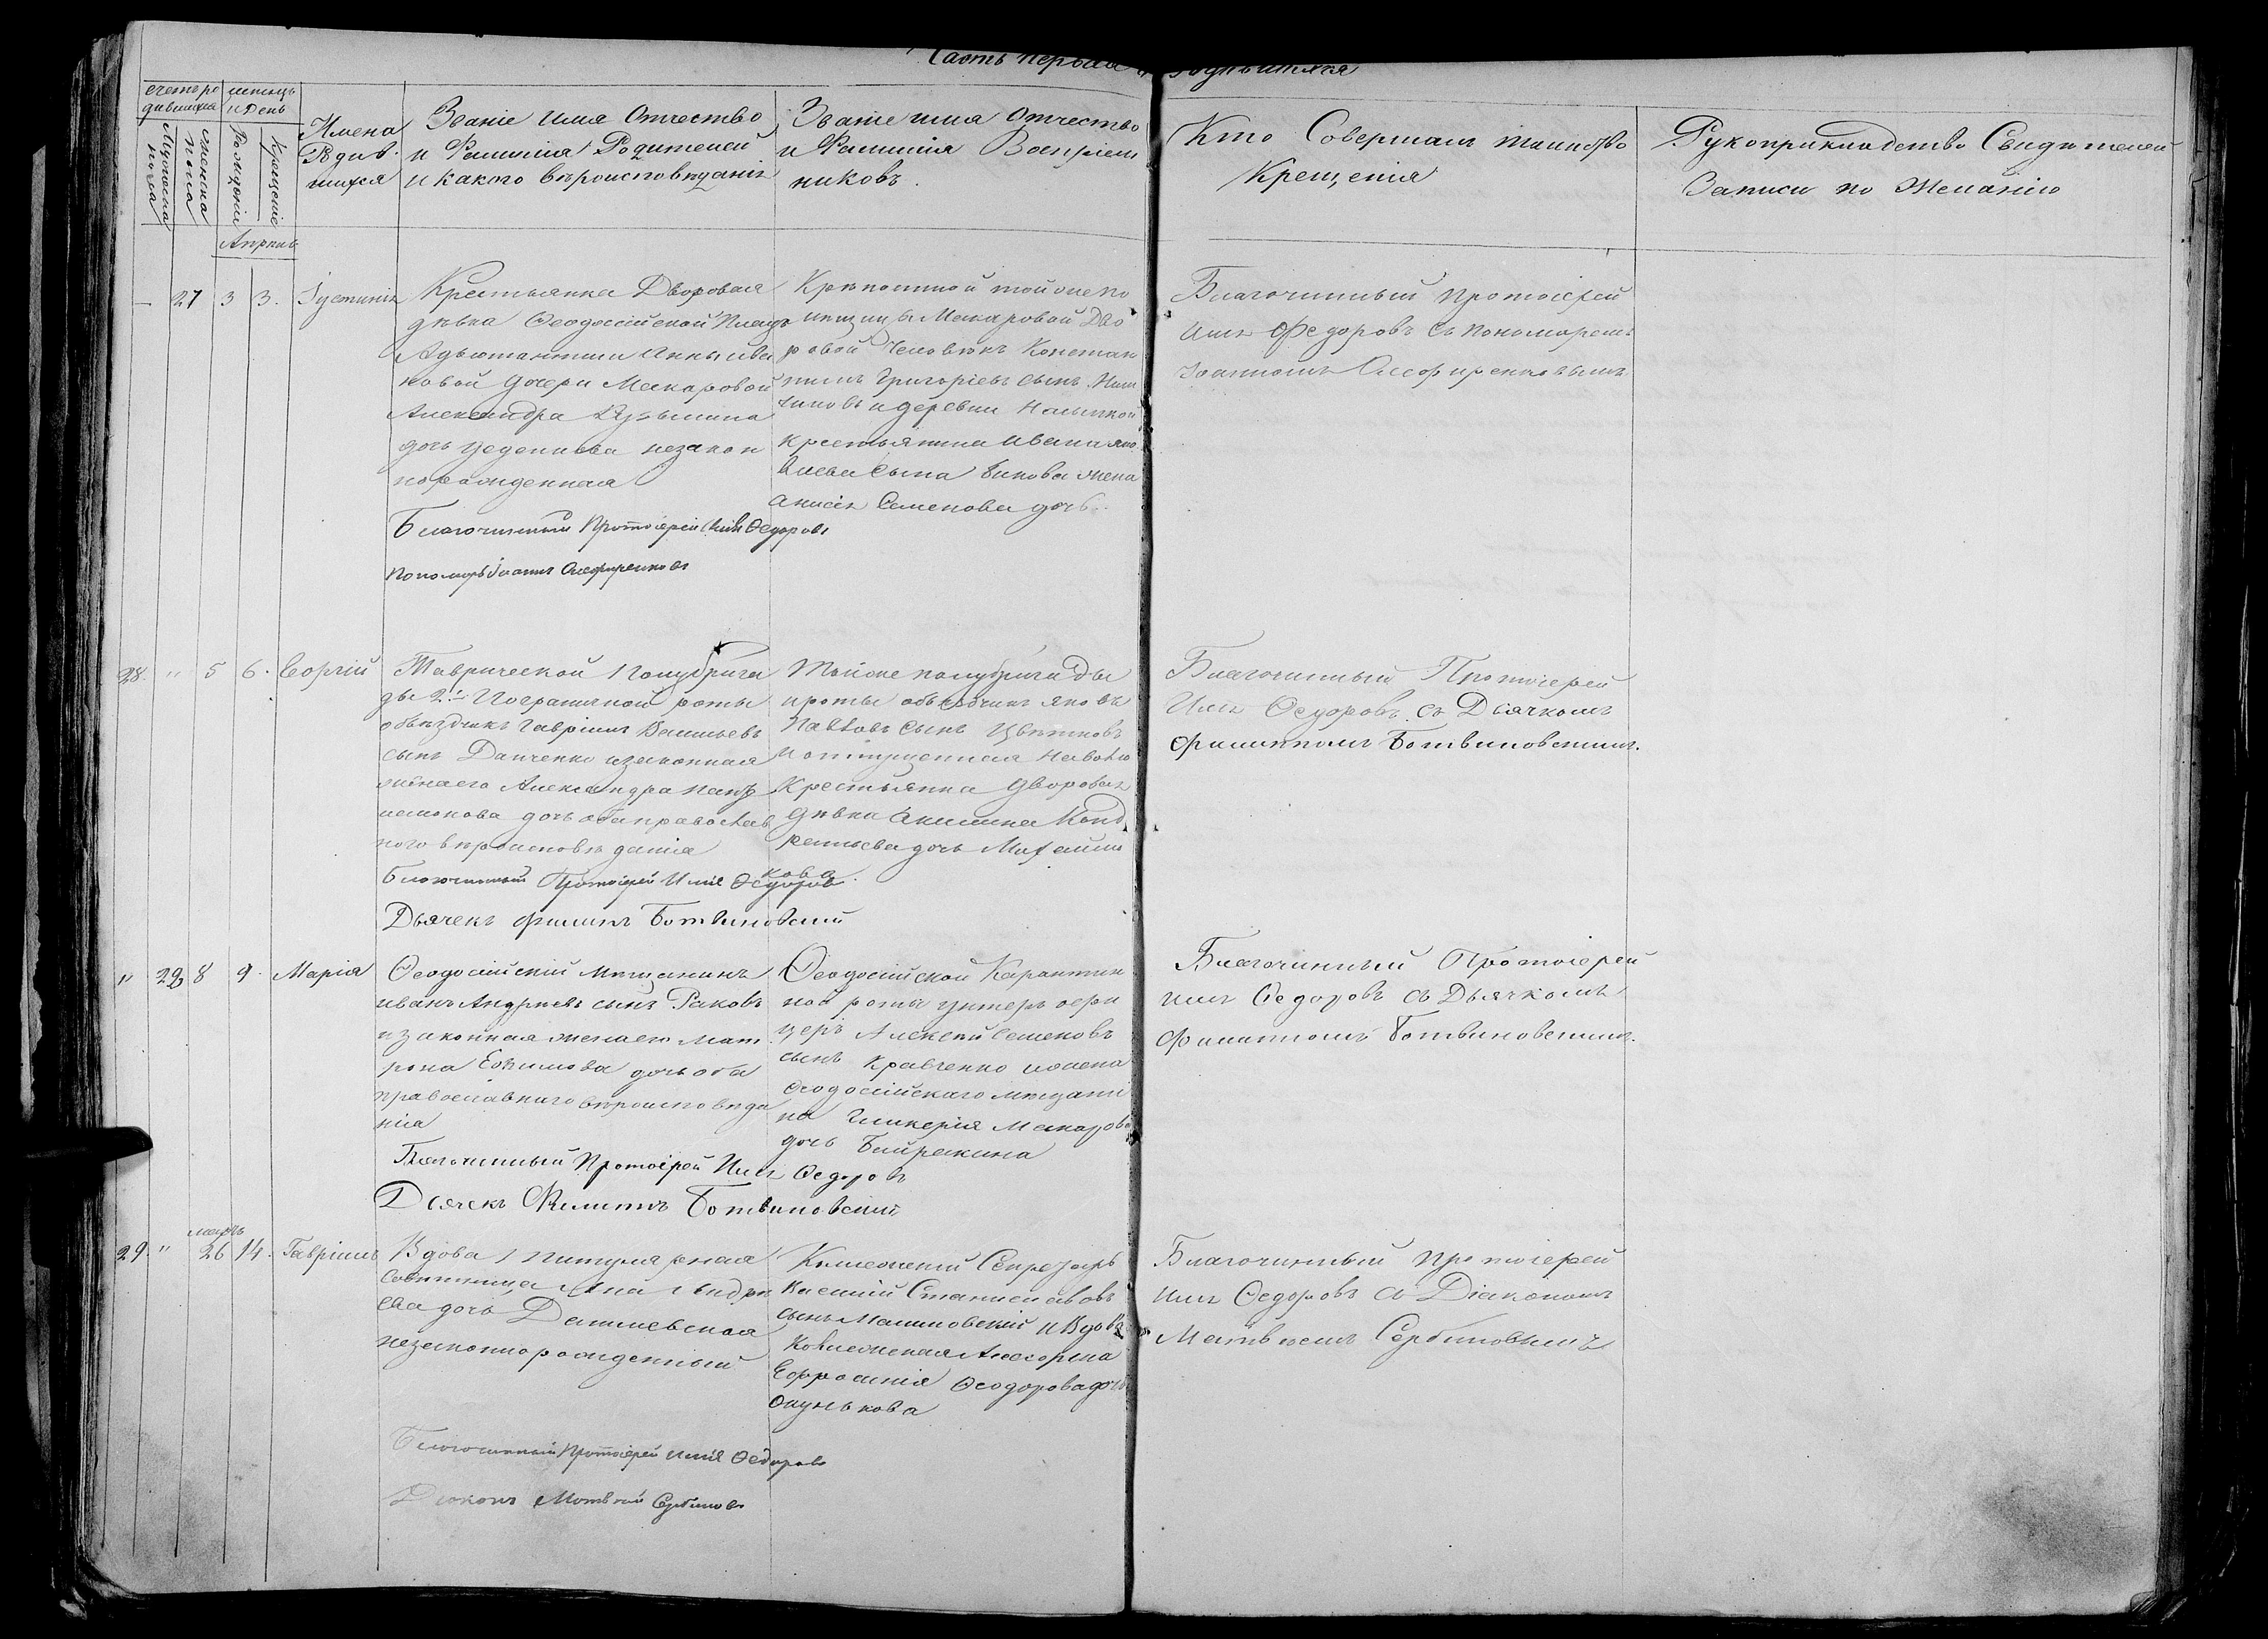 Часть первая о Родившихся
счетъ ро
дившихся
мѣсяцъ
и день
Мужеска
пола
Женска
пола
Рожденіи
Крещеніе
Имена
Родив.
шихся
Званіе Имя Отчество
и Фамилія Родителей
и какого вѣроисповѣданія
Званіе имя отчество
и Фамилія Воспріем
никовъ.
Кто Совершалъ таинство
Крещенія
Рукоприкладство Свидѣтелей
Записи по Желанію
Апрѣль
27 3 3. Іустинія
Крестьянка Дворовая
дѣвка Феодосійской Плацъ
Адъютантши Анны ива
новой дочери Макаровой
Александра Кузьмина
дочь незакон
норожденная
Благочинный Протоіерей Илія Федоровъ
Пономарь Іоаннъ Олефиренковъ
Крѣпостной той оне по
мѣщицы Макаровой Дво
ровой Человѣкъ Констан
тинъ Григоріевъ сынъ
и деревни
крестьянина Ивана яко
влева сына Бикова жена
Анисія Семенова дочь.
Благочинный протоіерей
Илія Федоровъ съ пономаремъ
Іоанномъ Олефиренковымъ
28. " 5 6. Георгій
Таврической Полубрига
ды 2й Пограничной роты
объѣздчикъ Гавріилъ Васильевъ
сынъ Данченко изаконная
женаего Александра Пант
лемонова дочь оба православ
ного вѣроисповѣданія
Благочинный Протоіерей Илія Федоровъ
Дьячекъ Филипъ Ботвиновскій
Тойоне полубригады
ироты объѣздчикъ яковъ
Павловъ сынъ Цвѣтковъ
и отпущенная наволю
Крестьянка дворовая
дѣвка Акилина Конд
ратьева дочь Михайли
кова
Благочинный Протоіерей
Илія Федоровъ съ Дьячкомъ
Филиппомъ Ботвиновскимъ.
" 28 8 9. Марія
Феодосійскій мѣщанинъ
иванъ Андреевъ сынъ Раковъ
изаконная женаего Мат
рона Ефимова дочь оба
православнаго вѣроисповѣда
нія
Благочинный Протоіерей Илія Федоровъ
Дьячекъ Филиппъ Ботвиновскій
Феодосійской Карантин
ной роты унтеръ офи
церъ Алексѣй Семеновъ
сынъ Кравченко ижена
Феодосійскаго мѣщани
на Гликерія Макарова
дочь Байракина
Благочинный Протоіерей
Илія Федоровъ съ Дьячкомъ
Филиппомъ Ботвиновскимъ.
мартъ
29. " 26 14. Гавріилъ
Вдова Титулярная
Совѣтница Анна Андре
ева дочь Данилевская
незаконнорожденный
Благочинный Протоіерей Илія Федоровъ
Діаконъ Матвѣй Сербиновъ
Коллежскій Секретарь
Касимій Станиславовъ
сынъ Малиновскій и Вдова
Коллежская Асесорша
Ефросинія Феодорова дочь
Окунькова
Благочинный протоіерей
Илія Федоровъ съ Діакономъ
Матвѣемъ Сербиновымъ